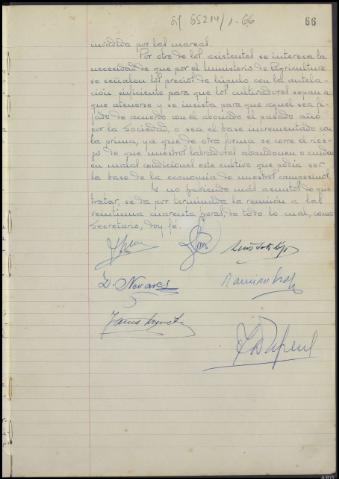 66
medida por las marcas.
Por otro de los asistentes se interesa la
necesidad de que por el Ministerio de Agricultura
se señalen los precios de lúpulo con la antela-
ción suficiente para que los cultivadores sepan a
que atenerse y se insista para que aquel sea fi-
jado de acuerdo con el abonado el pasado año
por la Sociedad, o sea el base incrementado con
la prima, ya que de otra forma se corre el ries-
go de que nuestros labradores abandonen o cuiden
en malas condiciones este cultivo que debía ser
la base de la economía de nuestros campesinos.
Y no habiendo más asuntos de que
tratar, se da por terminada la reunión a las
cuarenta horas, de todo lo cual, como
Secretario, doy fe.